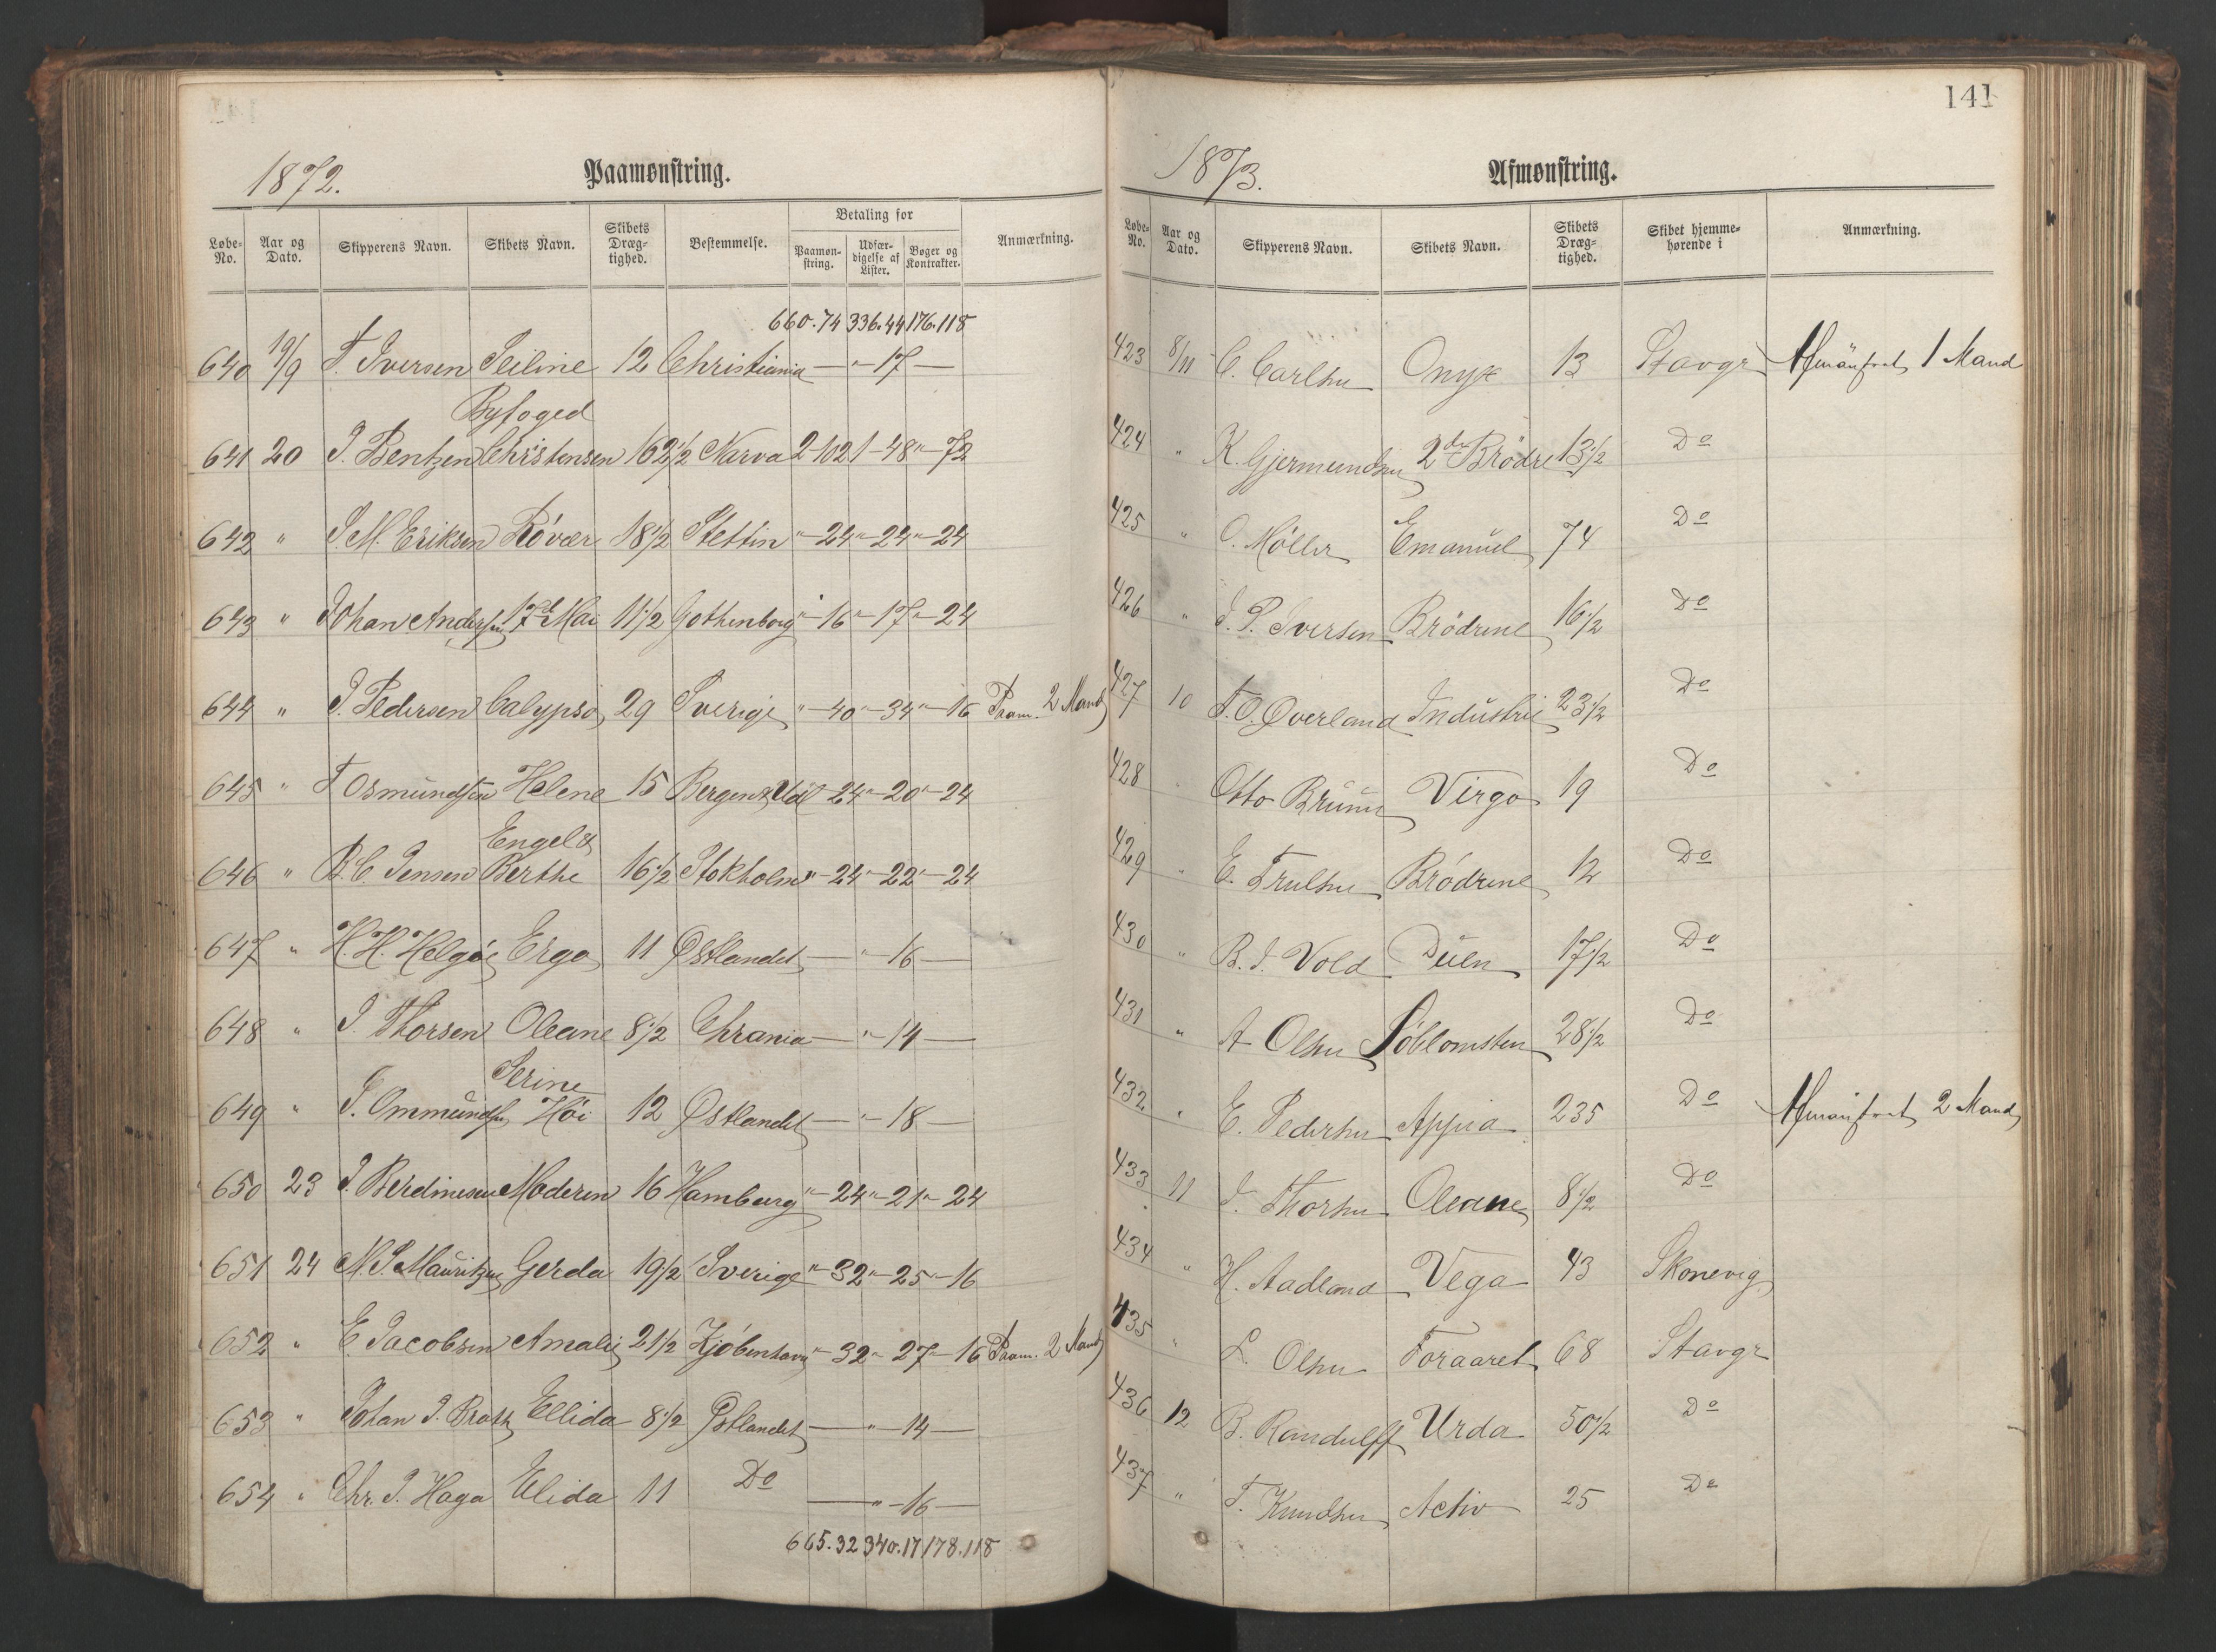 1872.
Paamønstring.
Løbe-No. Aar og Dato. Skipperens Navn. Skibets Navn. Skibets Dræg-tighed. Bestemmelse. Betaling for Paamøn-string. Udfær-digelse af Lister. Bøger og Kontrakter. Anmærkning.
660.74 336.44 176.118
640 19/9 T. Iversen Seiline 12 Christiania — " - 17 —
Byfoged
641 20 J. Bentzen Christensen 162 1/2 Narva 2-102 1-48 "-72
642 " S. M. Eriksen Röver 18 1/2 Stettin "-24 "-24 "-24
643 " Johan Andersen 17d Mai 11 1/2 Gothenborg "-16 "-17 "-24
644 " J. Pedersen Calypso 29 Sverige "-40 "-34 "-16 Paam. 2 Mand
645 " T Osmundsen Helene 15 Bergen & Udl "-24 "-20 "-24
Engel &
646 " B. C. Jensen Berthe 16 1/2 Stokholm "-24 "-22 "-24
647 " H. H. Helgöe Ergo 11 Østlandet — " - 16 —
648 " J. Thorsen Oleane 8 1/2 Chrania — " - 14 —
Serine
649 " J. Ommundsen Höi 12 Østlandet — " - 18 —
650 23 J. Berdinesen Moderen 16 Hamburg "-24 "-21 "-24
651 24 M. S. Mauritzen Gerda 19 1/2 Sverige "-32 "-25 "-16
652 " E. Jacobsen Amalie 21 1/2 Kjöbenhavn "-32 "-27 "-16 Paam. 2 Mand
653 " Johan J. Ellida 8 1/2 Østlandet — " - 14 —
654 " Chr. J. Haga Elida 11 Do — " - 16 —
665.32 340.17 178.118
141
1873.
Afmønstring.
Løbe-No. Aar og Dato. Skipperens Navn. Skibets Navn. Skibets Dræg-tighed. Skibet hjemme-hørende i Anmærkning.
423 8/11 C. Carlsen Onyx 13 Stavgr Afmönstret 1 Mand
424 " K. Gjermundsen 2de Brödre 13 1/2 Do
425 " O. Möller Emanuel 74 Do
426 " J. P. Iversen Brödrene 16 1/2 Do
427 10 T. O. Qverland Industrie 23 1/2 Do
428 " Otto Bruun Virgo 19 Do
429 " E. Trulsen Brödrene 12 Do
430 " B. J. Vold Duen 17 1/2 Do
431 " A Olsen Söblomsten 28 1/2 Do
432 " E. Pedersen Appia 235 Do Afmönstret 2 Mand
433 11 J. Thorsen Oleane 8 1/2 Do
434 " H. Aadland Vega 43 Skonevig
435 " L. Olsen Foraaret 68 Stavgr
436 12 B. Randulff Urda 50 1/2 Do
437 " T. Knudsen Activ 25 Do